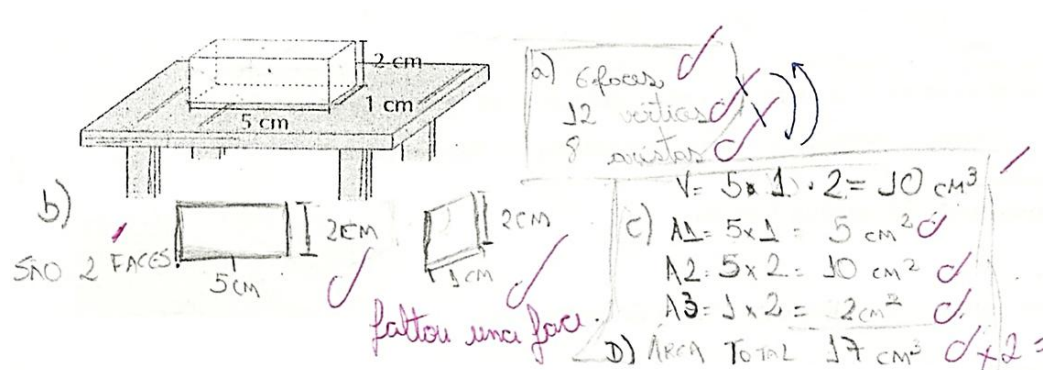 2 cm
1 cm
5 cm
a) 6 faces
12 vértices
8 aristas
b)
SÃO 2 FACES
2CM
5CM
2CM
1CM
faltou uma face.
V= 5 . 1 . 2 = 10 CM³
C) A1= 5x1 = 5 cm²
A2= 5x2 = 10 cm²
A3= 1x2 = 2cm²
D) ÁREA TOTAL 17 cm³ x2 =